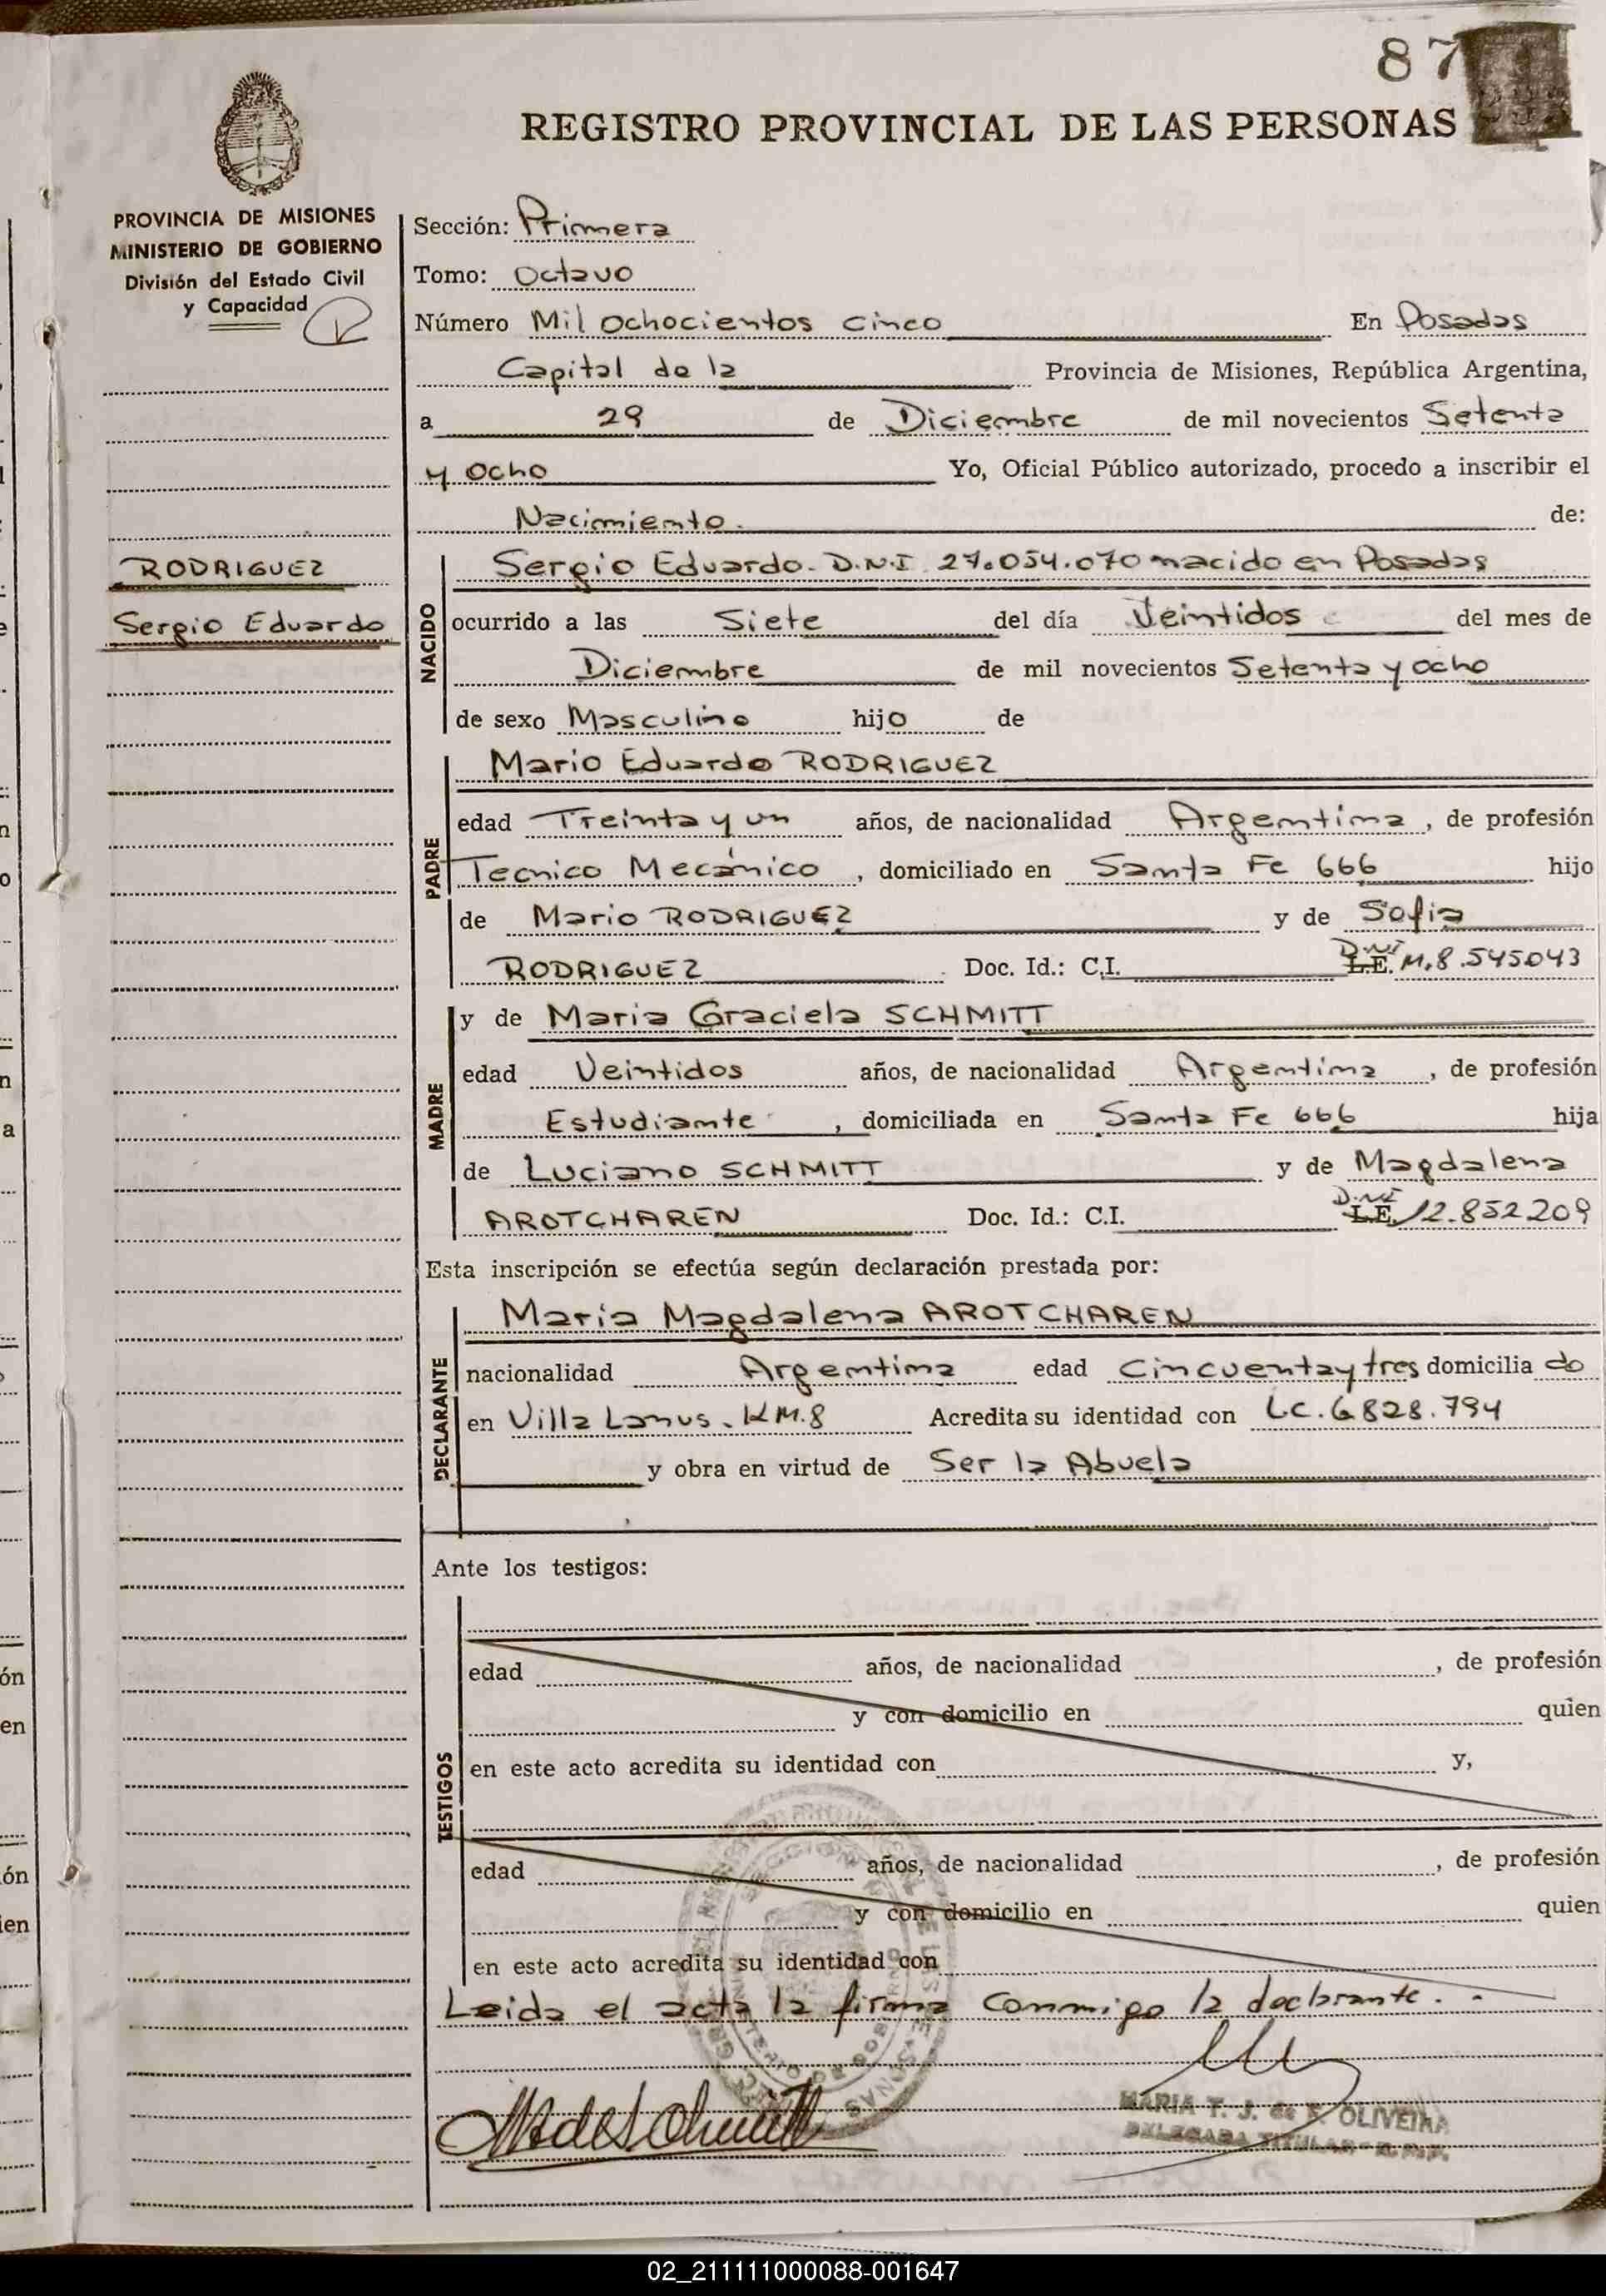 87
REGISTRO PROVINCIAL DE LAS PERSONAS
PROVINCIA DE MISIONES
MINISTERIO DE GOBIERNO
División del Estado Civil
y Capacidad
Sección: Primera
Tomo: Octavo
Número Mil ochocientos cinco En Posadas
Capital de la Provincia de Misiones, República Argentina,
a 29 de Diciembre de mil novecientos Setenta
y ocho Yo, Oficial Público autorizado, procedo a inscribir el
Nacimiento. de:
RODRIGUEZ
Sergio Eduardo
NACIDO
Sergio Eduardo. D.N.I 27.054.070 nacido en Posadas
ocurrido a las Siete del día Veintidos del mes de
Diciembre de mil novecientos Setenta y ocho
de sexo Masculino hijo de
PADRE
Mario Eduardo RODRIGUEZ
edad Treinta y un años, de nacionalidad Argentina, de profesión
Tecnico Mecánico, domiciliado en Santa Fe 666 hijo
de Mario RODRIGUEZ y de Sofia
RODRIGUEZ Doc. Id.: C.I. L.E. D.NI M.8.545043
MADRE
y de Maria Graciela SCHMITT
edad Veintidos años, de nacionalidad Argentina, de profesión
Estudiante, domiciliada en Santa Fe 666 hija
de Luciano SCHMITT y de Magdalena
AROTCHAREN Doc. Id.: C.I. L.E. D.NI 12.852209
Esta inscripción se efectúa según declaración prestada por:
DECLARANTE
Maria Magdalena AROTCHAREN
nacionalidad Argentina edad Cincuenta y tres domicilia do
en Villa Lanus. KM.8 Acredita su identidad con LC.6828.794
y obra en virtud de Ser la Abuela
Ante los testigos:
TESTIGOS
edad años, de nacionalidad , de profesión
y con domicilio en quien
en este acto acredita su identidad con y,
edad años, de nacionalidad , de profesión
y con domicilio en quien
en este acto acredita su identidad con
Leida el acta la firma conmigo la declarante.
MARIA T. J. de F. OLIVEIRA
DELEGADA TITULAR - R.P.P.
02_211111000088-001647